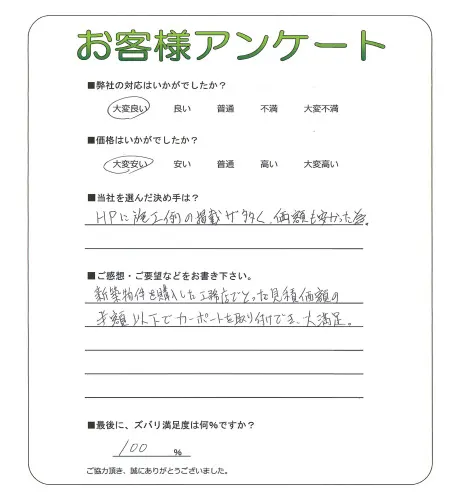 お客様アンケート
■弊社の対応はいかがでしたか？
大変良い 良い 普通 不満 大変不満
■価格はいかがでしたか？
大変安い 安い 普通 高い 大変高い
■当社を選んだ決め手は？
HPに施工例の掲載が多く、価額も安かった為。
■ご感想・ご要望などをお書き下さい。
新築物件を購入した工務店でとった見積価額の
半額以下でカーポートを取り付けでき、大満足。
■最後に、ズバリ満足度は何%ですか？
100 %
ご協力頂き、誠にありがとうございました。